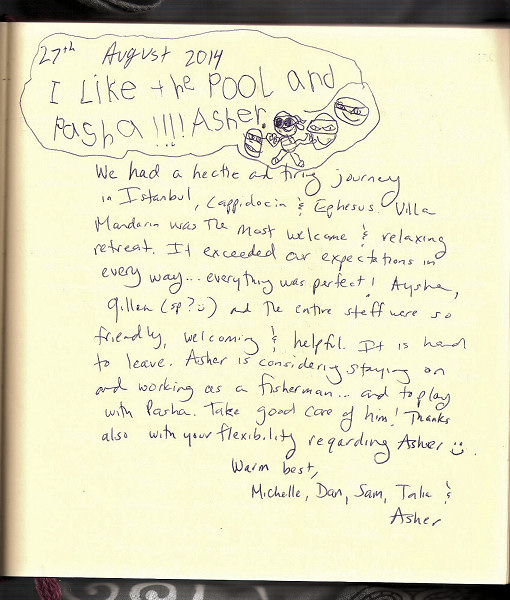 27th August 2014
I Like the POOL and
Pasha !!!! Asher.
We had a hectic and tiring journey
in Istanbul, Cappidocin & Ephesus. Villa
Mandarin was The most welcome & relaxing
retreat. It exceeded our expectations in
every way... everything was perfect! Aysha,
gillen (sp? :)) and The entire staff were so
friendly, welcoming & helpful. It is hard
to leave. Asher is considering staying on
and working as a fisherman... and to play
with Pasha. Take good care of him! Thanks
also with your flexibility regarding Asher :).
Warm best,
Michelle, Dan, Sam, Talie &
Asher